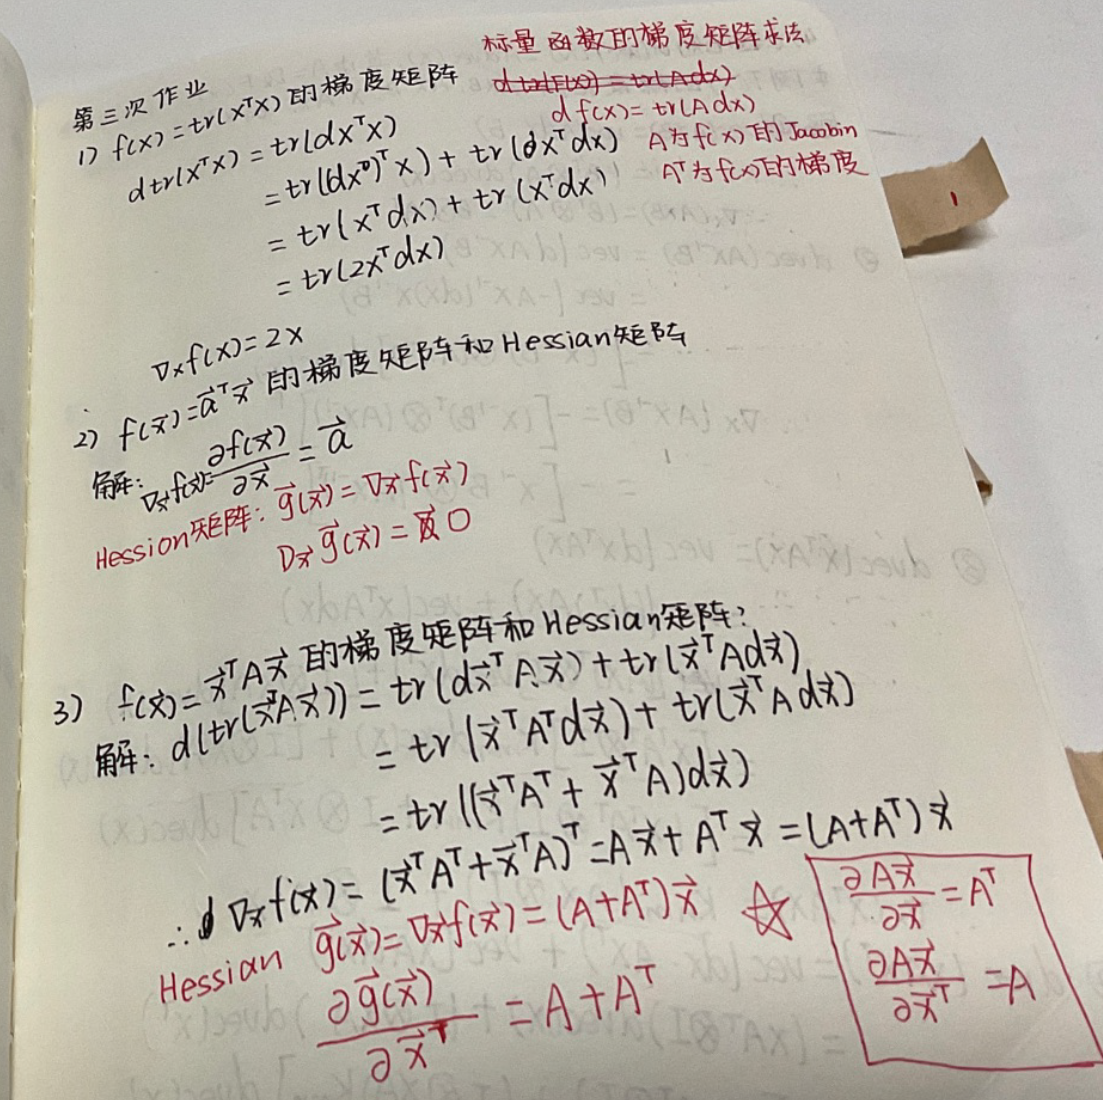 标量函数的梯度矩阵求法
d tr(F(x)) = tr(A dx)
d f(x) = tr(A dx)
A为f(x)的Jacobin
A^T为f(x)的梯度
第三次作业
1) f(x) = tr(x^T x) 的梯度矩阵
d tr(x^T x) = tr(dx^T x)
= tr((dx)^T x) + tr(x^T dx)
= tr(x^T dx) + tr(x^T dx)
= tr(2x^T dx)
∇x f(x) = 2x
2) f(x⃗) = a⃗^T x⃗ 的梯度矩阵和Hessian矩阵
解: ∇x⃗ f(x⃗) = ∂f(x⃗)/∂x⃗ = a⃗
Hession矩阵: g⃗(x⃗) = ∇x⃗ f(x⃗)
∇x⃗ g⃗(x⃗) = 0
3) f(x⃗) = x⃗^T A x⃗ 的梯度矩阵和Hessian矩阵:
解: d(tr(x⃗^T A x⃗)) = tr(dx⃗^T A x⃗) + tr(x⃗^T A dx⃗)
= tr(x⃗^T A^T dx⃗) + tr(x⃗^T A dx⃗)
= tr((x⃗^T A^T + x⃗^T A) dx⃗)
∴ ∇x f(x⃗) = (x⃗^T A^T + x⃗^T A)^T = A x⃗ + A^T x⃗ = (A + A^T) x⃗
Hessian g⃗(x⃗) = ∇x⃗ f(x⃗) = (A + A^T) x⃗
∂g⃗(x⃗)/∂x⃗^T = A + A^T
☆ ∂A x⃗/∂x⃗ = A^T
∂A x⃗/∂x⃗^T = A